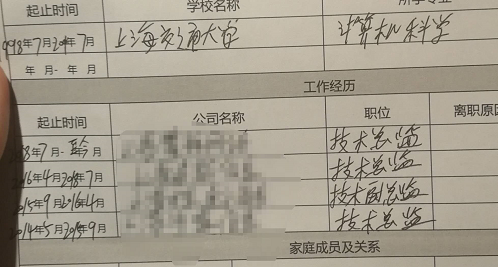 起止时间 学校名称
998年7月 年7月 上海交通大学 计算机科学
年 月 - 年 月
工作经历
起止时间 公司名称 职位 离职原因
8年7月 - 至今 月 技术总监
2016年4月2018年7月 技术总监
2015年9月2016年4月 技术副总监
2014年5月2015年9月 技术总监
家庭成员及关系